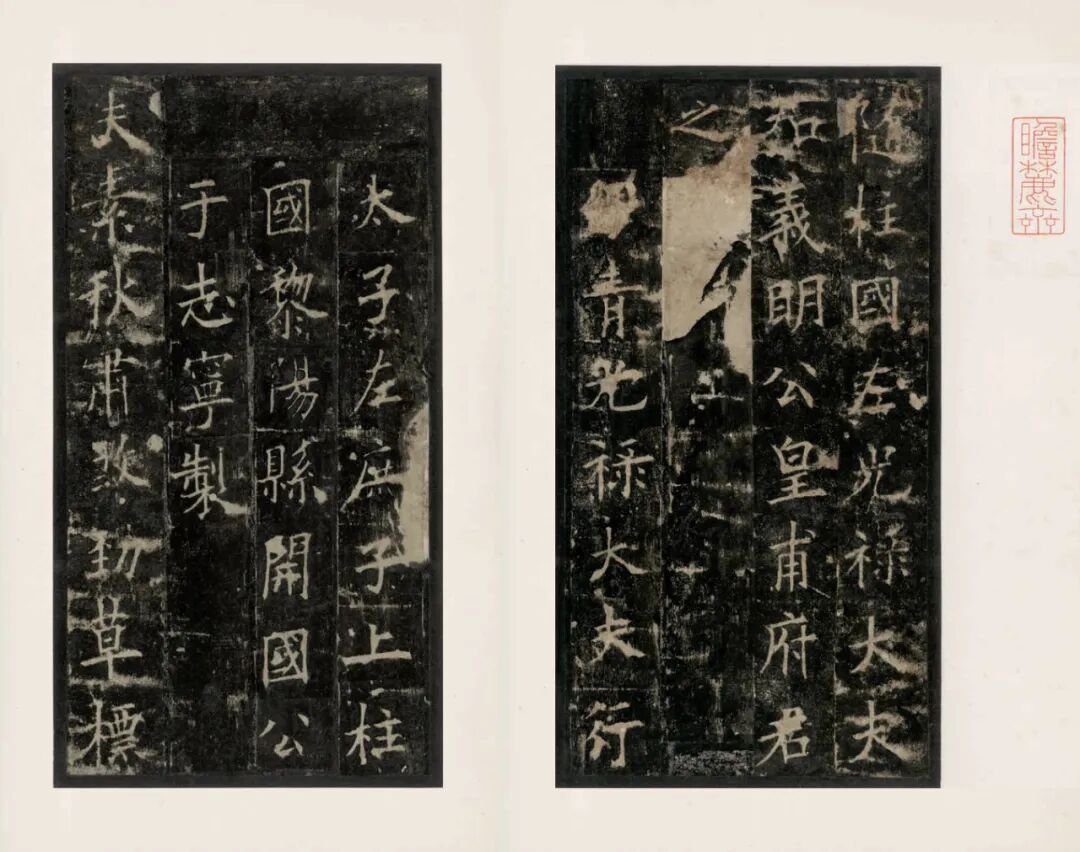 瞻麓齋
隨柱國左光祿大夫
和義明公皇甫府君
之
青光祿大夫行
太子左庶子上柱
國黎陽縣開國公
于志寧製
夫素秋肅煞勁草標